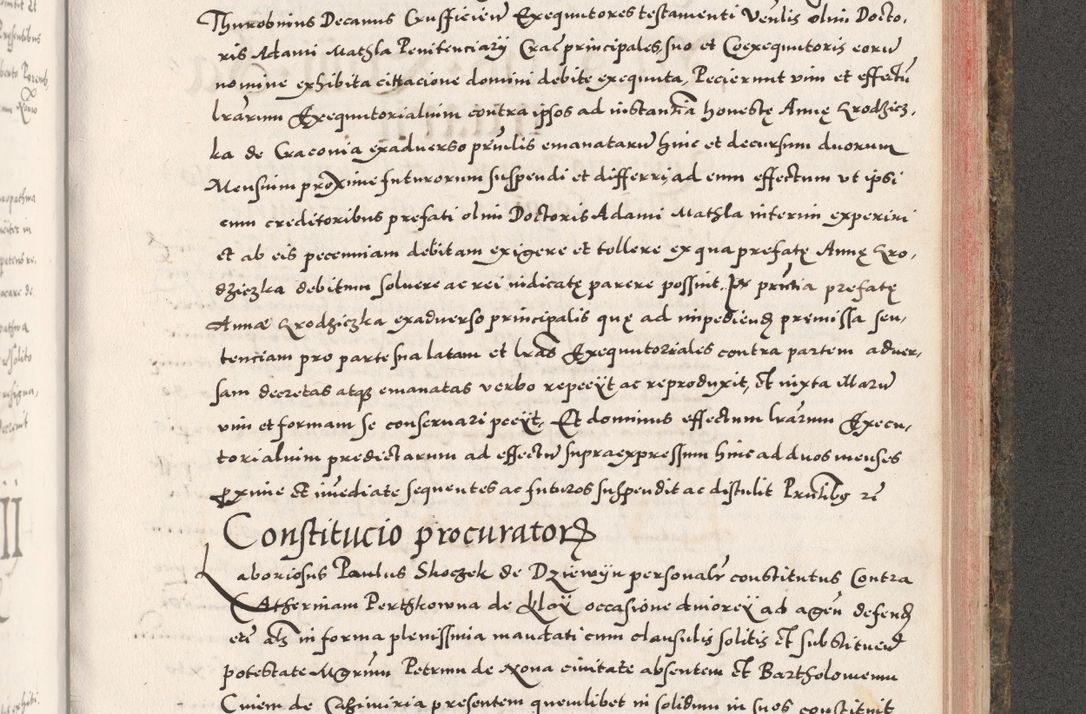 Thurobnius Decanus Crusficien Exequutores testamenti Venlis olim Docto,
ris Adami Mathla Penitenciarij Crac principales suo et Coexequutoris eoru
nomine exhibita cittacione domini debite exequuta. Pecierunt vim et effectu
lrarum Exequutorialuim contra ipsos ad instantia honestę Annę Krodzicz,
ka de Craconia exaduerso pnlis emanataru hinc et decursum duorum
Mensium proxime futurorum suspendi et differri, ad eum effectum vt ipsi
cum creditoribus prefati olim Doctoris Adami Mathla interim experiri
et ab eis pecuniam debitam exigere et tollere ex qua prefatę Annę Kro,
dziczka debitum soluere ac rei iudicatę parere possint. In pntia prefatę
Annæ Krodziczka exaduerso principalis quę ad impediend premissa sen,
tenciam pro parte sua latam et lras Exequutoriales contra partem aduer,
sam decretas atq emanatas verbo repecijt ac reproduxit, et iuxta illaru
vim et formam se conseruari pecijt. Et dominus effectum lrarum Execu,
torialuim predictarum ad effectu supraexpressum hinc ad duos menses
pxime et imediate sequentes ac futuros suspendit ac distulit Pntibq re
Constitucio procurator
Laboriosus Paulus Skoczek de Dziewijn personalr constitutus Contra
Catherinam Perthkowna de Klaij occasione dmorei ad agen defend
etc atq in forma plenissima mandati cum clausulis solitis et substituend
potestate Mgrum Petrum de Noua ciuitate absentem et Bartholomeum
Cuiem de Cazimiria presentem quemlibet in solidum in suos constituit